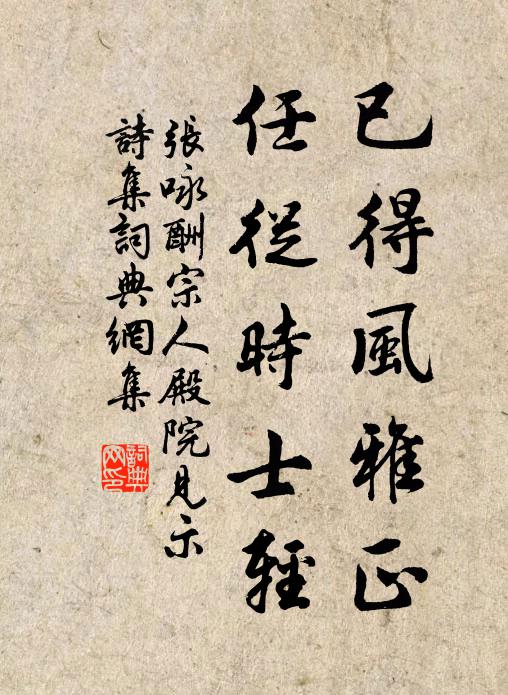 已得風雅正
任從時士輕
張咏酬宗人殿院見示
詩集詞典網集
詞典
网印